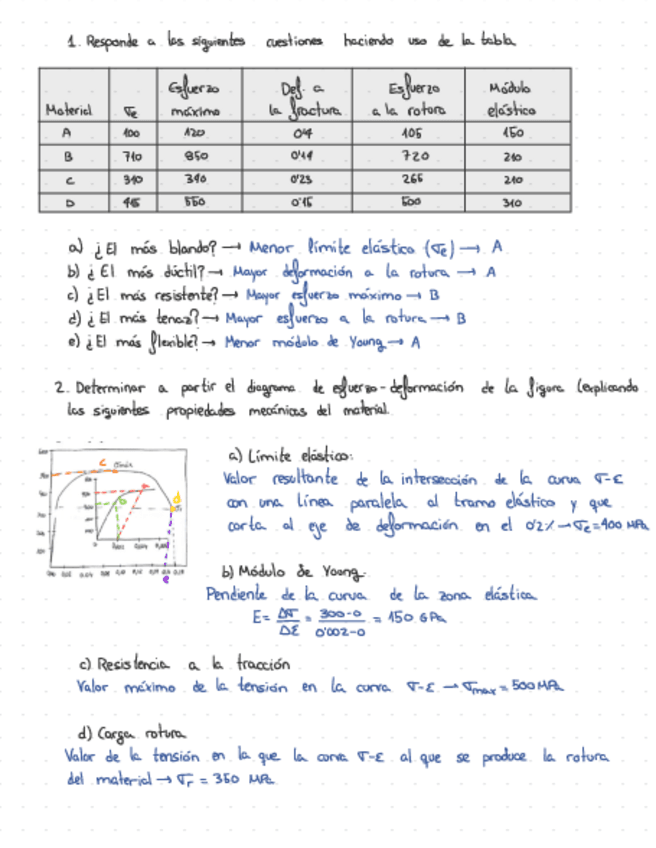 1. Responde a las siguientes cuestiones haciendo uso de la tabla
Material σe Esfuerzo máximo Def. a la fractura Esfuerzo a la rotura Módulo elástico
A 100 120 0'4 105 150
B 710 850 0'14 720 210
C 310 340 0'23 265 210
D 415 550 0'15 500 310
a) ¿El más blando? → Menor límite elástico (σe) → A
b) ¿El más dúctil? → Mayor deformación a la rotura → A
c) ¿El más resistente? → Mayor esfuerzo máximo → B
d) ¿El más tenaz? → Mayor esfuerzo a la rotura → B
e) ¿El más flexible? → Menor módulo de Young → A
2. Determinar a partir el diagrama de esfuerzo-deformación de la figura (explicando
las siguientes propiedades mecánicas del material.
a) Límite elástico:
Valor resultante de la intersección de la curva σ-ε
con una línea paralela al tramo elástico y que
corta al eje de deformación en el 0'2% → σe = 400 MPa
b) Módulo de Young.
Pendiente de la curva de la zona elástica
E = Δσ/Δε = 300-0/0'002-0 = 150 GPa
c) Resistencia a la tracción
Valor máximo de la tensión en la curva σ-ε → σmax = 500 MPa
d) Carga rotura
Valor de la tensión en la que la curva σ-ε al que se produce la rotura
del material → σr = 350 MPa